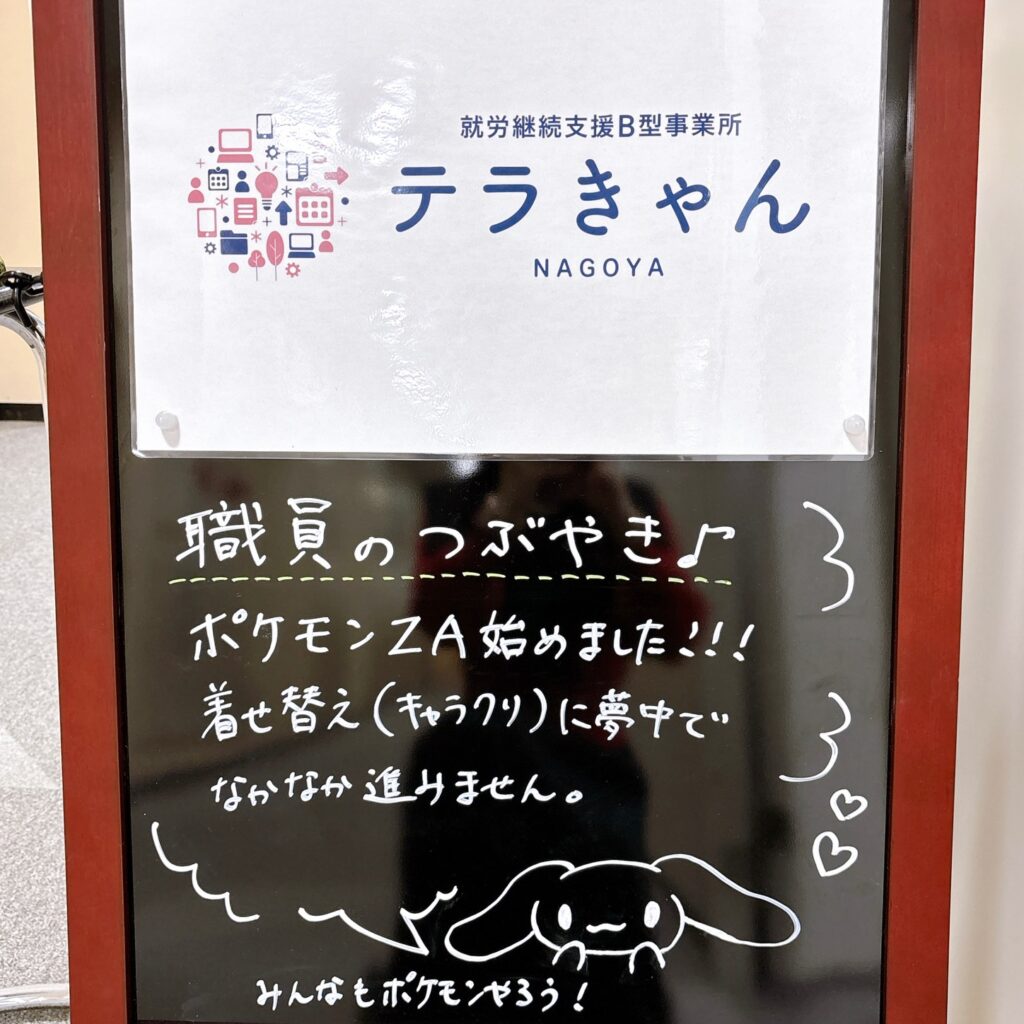 就労継続支援B型事業所
テラきゃん
NAGOYA
職員のつぶやき♪
ポケモンZA始めました!!!
着せ替え(キャラクリ)に夢中で
なかなか進みません。
みんなもポケモンやろう!